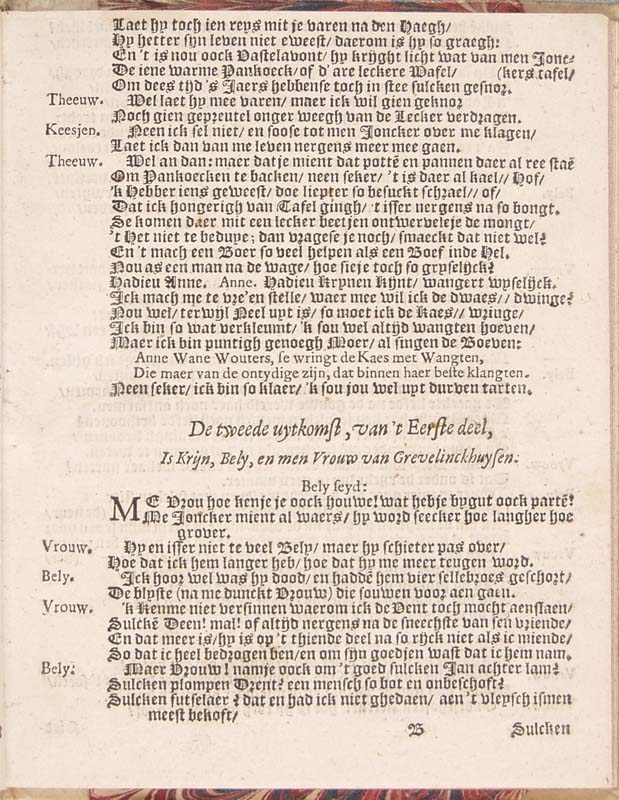 Laet hy toch ien reys mit je varen na den Haegh/
Hy hetter syn leven niet eweest/ daerom is hy so graegh:
En 't is nou oock Vastelavont/ hy krijght licht wat van men Jonc-
De iene warme Pankoeck/ of d'are leckere Wafel/ (kers tafel/
Om dees tijd 's Jaers hebbense toch in stee sulcken gesnor.
Theeuw. Wel laet hy mee varen/ maer ick wil gien geknor
Noch gien gepreutel onger weegh van de Lecker verdragen.
Keesjen. Neen ick sel niet/ en soose tot men Joncker over me klagen/
Laet ick dan van me leven nergens meer mee gaen.
Theeuw. Wel an dan: maer datje mient dat pottē en pannen daer al ree staē
Om Pankoecken te backen/ neen seker/ 't is daer al kael// Hof/
'k Hebber iens geweest/ doe liepter so besuckt schrael// of/
Dat ick hongerigh van Tafel gingh/ 't isser nergens na so bongt.
Se komen daer mit een lecker beetjen ontwerveleje de mongt/
't Het niet te beduye; dan vragese je noch/ smaeckt dat niet wel?
En 't mach een Boer so veel helpen als een Boef inde Hel.
Nou as een man na de wage/ hoe sieje toch so gryselijck?
Hadieu Anne. Anne. Hadieu Krynen Kijnt/ wangert wyselijck.
Ick mach me te vre'en stelle/ waer mee wil ick de dwaes// dwinge?
Nou wel/ terwijl Neel uyt is/ so moet ick de Kaes// wringe/
Ick bin so wat verkleumt/ 'k sou wel altijd wangten hoeven/
Maer ick bin puntigh genoegh Moer/ al singen de Boeven:
Anne Wane Wouters, se wringt de Kaes met Wangten,
Die maer van de ontydige zijn, dat binnen haer beste klangten.
Neen seker/ ick bin so klaer/ 'k sou jou wel uyt durven tarten.
De tweede uytkomst, van 't Eerste deel,
Is Krijn, Bely, en men Vrouw van Grevelinckhuysen.
Bely seyd:
ME Vrou hoe kenje je oock houwe! wat hebje bygut oock partē!
Me Joncker mient al waers/ hy word seecker hoe langher hoe
grover.
Vrouw. Hy en isser niet te veel Bely/ maer hy schieter pas over/
Hoe dat ick hem langer heb/ hoe dat hy me meer teugen word.
Bely. Ick hoor wel was hy dood/ en haddē hem vier sellebroes geschort/
De blyste (na me dunckt Vrouw) die souwen voor aen gaen.
Vrouw. 'k Kenme niet versinnen waerom ick de Vent toch mocht aenslaen/
Sulckē Deen! mal! of altijd nergens na de sneechste van sen vriende/
En dat meer is/ hy is op 't thiende deel na so rijck niet als ic miende/
So dat ic heel bedrogen ben/ en om syn goedjen wast dat ic hem nam.
Bely: Maer Vrouw! namje oock om 't goed sulcken Jan achter lam?
Sulcken plompen Drent? een mensch so bot en onbeschoft?
Sulcken futselaer? dat en had ick niet ghedaen/ aen 't vleysch ismen
meest bekoft/
B Sulcken